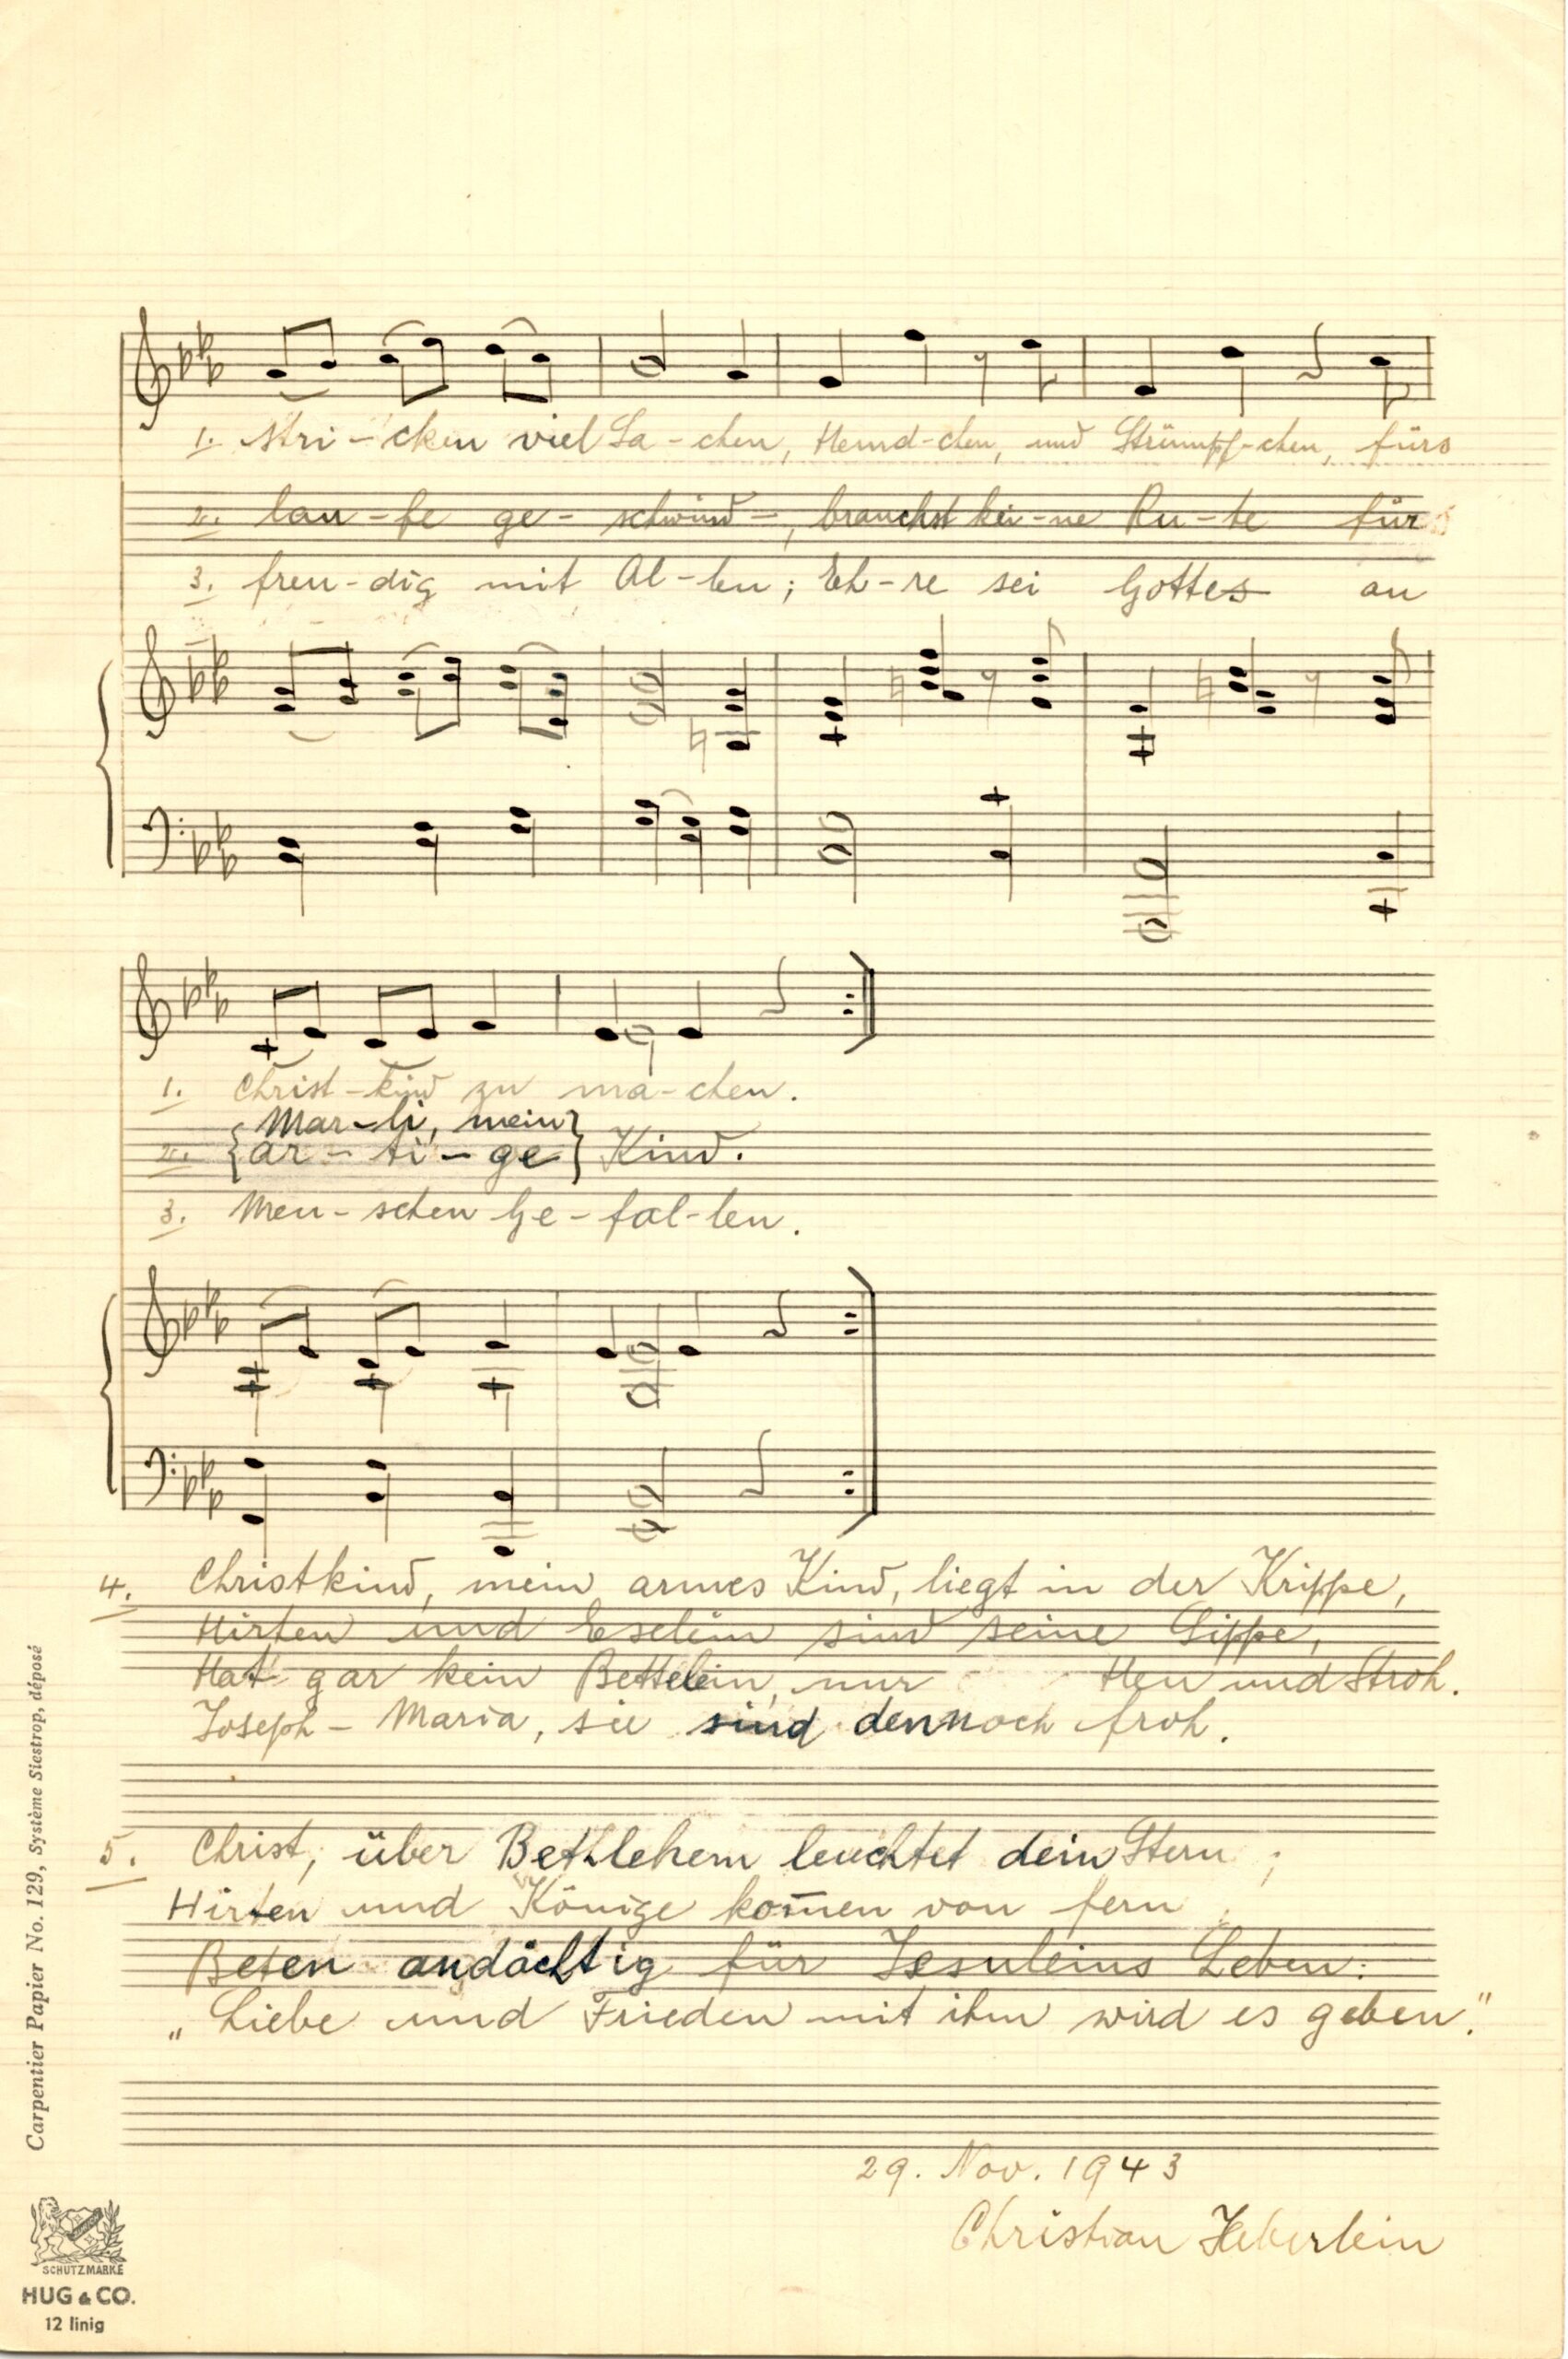 1. stri-cken viel Sa-chen, Hemd-chen, und Strümpf-chen, fürs
2. lau-fe ge-schwind-, brauchst kei-ne Ru-te für
3. freu-dig mit Al-len; Eh-re sei Gottes an
1. Christ-kind zu ma-chen.
Mar-li, mein
2. {ar-ti-ge} Kind.
3. Men-schen Ge-fal-len.
4. Christkind, mein armes Kind, liegt in der Krippe,
Hirten und Eselein sind seine Sippe,
Hat gar kein Bettelein, nur Heu und Stroh.
Joseph-Maria, sie sind dennoch froh.
5. Christ, über Bethlehem leuchtet dein Stern;
Hirten und Könige kom̅en von fern
Beten andächtig für Jesuleins Leben:
„Liebe und Frieden mit ihm wird es geben."
29. Nov. 1943
Christian Heberlein
Carpentier Papier No. 129, Système Siestrop, déposé
SCHUTZMARKE
HUG & CO.
12 linig